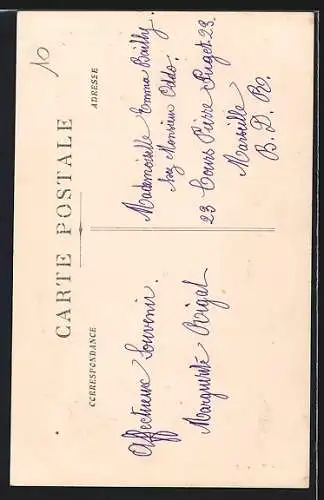 10
CARTE POSTALE
CORRESPONDANCE
ADRESSE
Affectueux Souvenir.
Marguerite Rigal
Mademoiselle Emma Bailby.
chez Monsieur Oddo.
23 Cours Pierre Puget. 23.
Marseille
B. D. R.